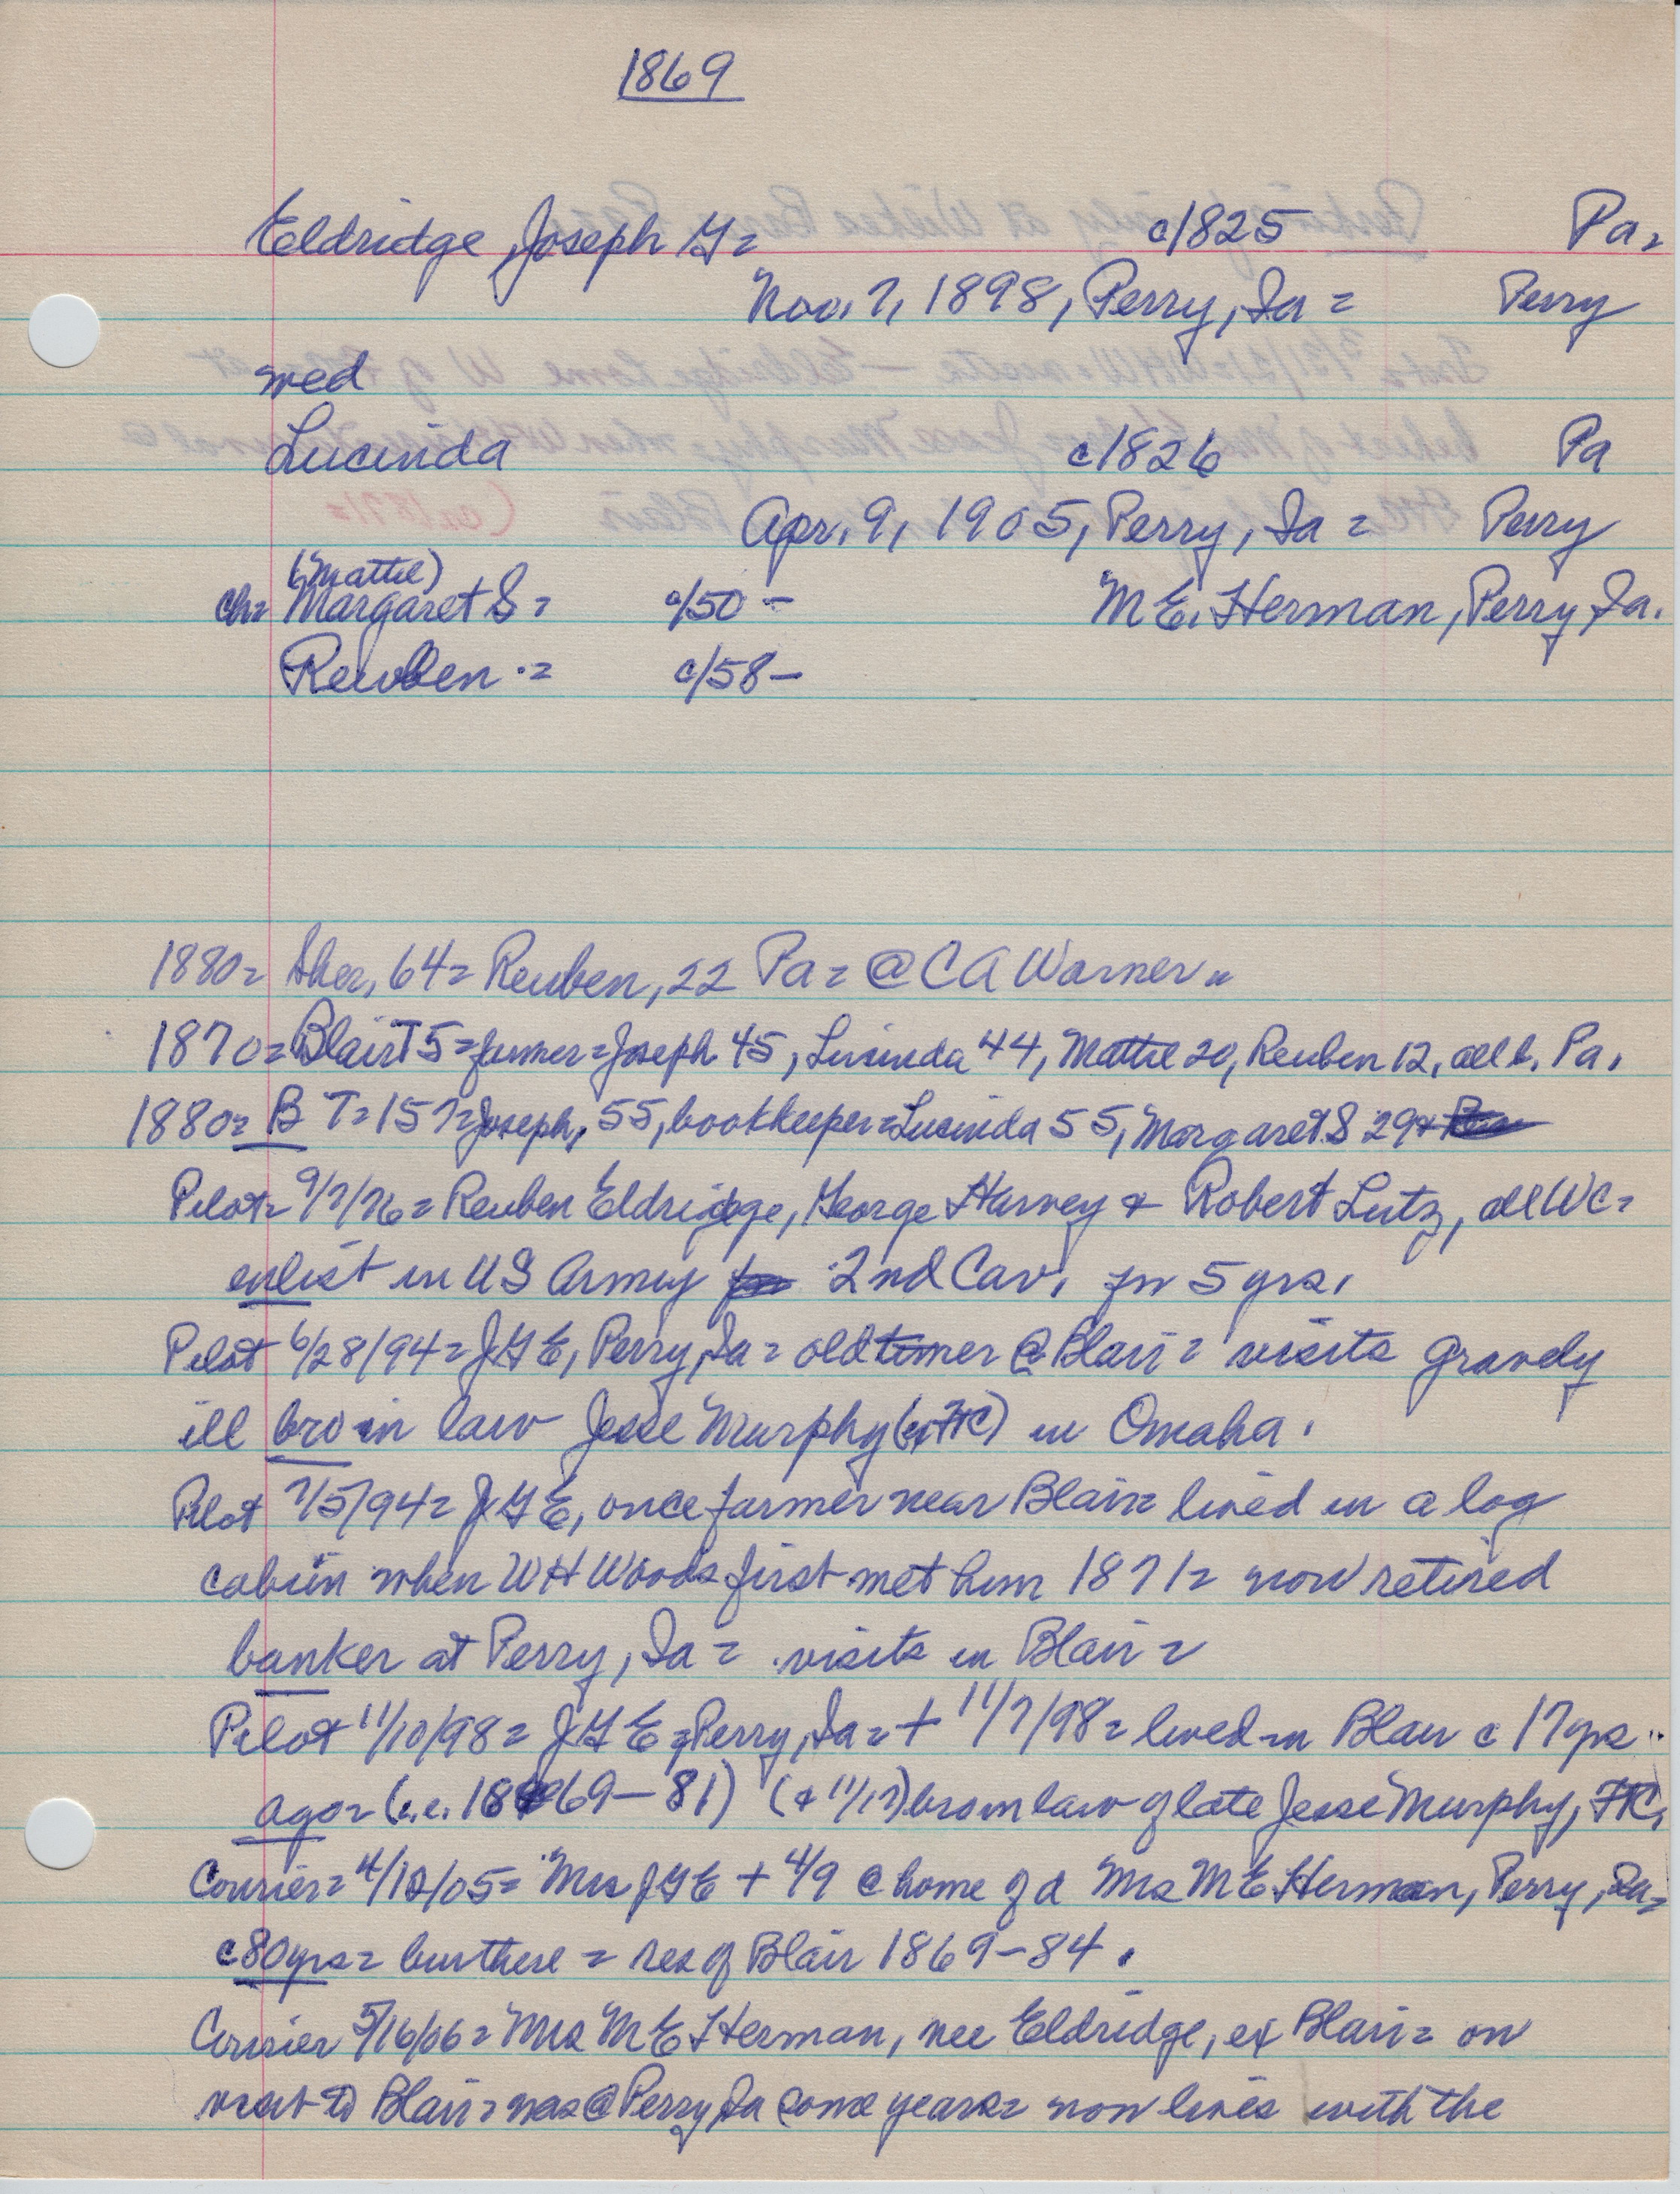 1869
Eldridge, Joseph G= c/1825 Pa=
Nov. 7, 1898, Perry, Ia = Perry
wed
Lucinda c/1826 Pa
Apr. 9, 1905, Perry, Ia = Perry
(Mattie)
ch= Margaret S = c/50 - M E. Herman, Perry, Ia.
Reuben = c/58 -
1880= Sher, 64= Reuben, 22 Pa= @ C A Warner=
1870= Blair T 5= farmer= Joseph 45, Lucinda 44, Mattie 20, Reuben 12, all b. Pa.
1880= B T= 157= Joseph, 55, bookkeeper= Lucinda 55, Margaret S 29+
Pilot= 9/7/76= Reuben Eldridge, George Harvey & Robert Lutz, all WC=
enlist in US Army 2nd Cav. for 5 yrs.
Pilot 6/28/94= J G E, Perry, Ia = oldtimer @ Blair = visits gravely
ill bro in law Jesse Murphy (ex FtC) in Omaha.
Pilot 7/5/94= J G E, once farmer near Blair= lived in a log
cabin when W H Woods first met him 1871= now retired
banker at Perry, Ia = visits in Blair =
Pilot 11/10/98= J G E, Perry, Ia = + 11/7/98= lived in Blair c 17 yrs
ago= (i.e. 1869-81) (& 11/17) bro in law of late Jesse Murphy, FtC,
Courier= 4/12/05= Mrs J G E + 4/9 @ home of d Mrs M E Herman, Perry, Ia=
c 80 yrs= bur there = res of Blair 1869-84.
Courier 5/16/06= Mrs M E Herman, nee Eldridge, ex Blair= on
visit to Blair= was @ Perry, Ia some years= now lives with the